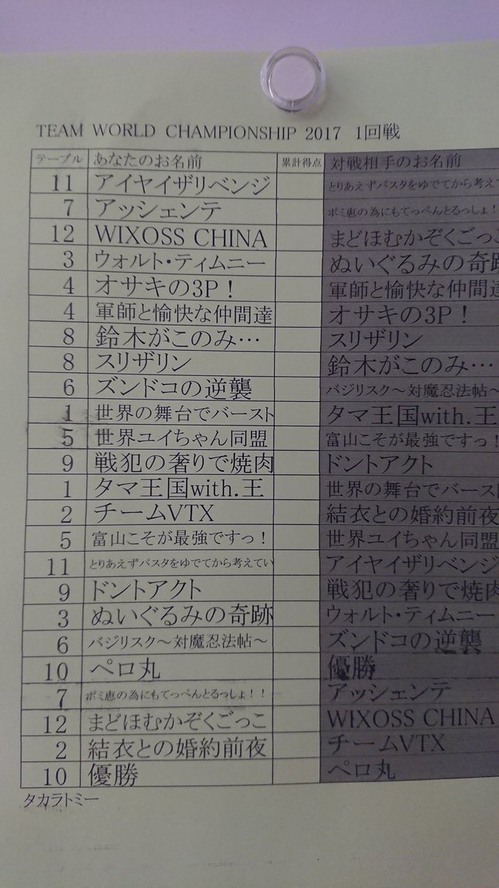 TEAM WORLD CHAMPIONSHIP 2017 1回戦
テーブル あなたのお名前 累計得点 対戦相手のお名前
11 アイヤイザリベンジ とりあえずパスタをゆでてから考えて
7 アッシェンテ ボミ恵の為にもてっぺんとるっしょ！
12 WIXOSS CHINA まどほむかぞくごっこ
3 ウォルト・ティムニー ぬいぐるみの奇跡
4 オサキの3P！ 軍師と愉快な仲間達
4 軍師と愉快な仲間達 オサキの3P！
8 鈴木がこのみ… スリザリン
8 スリザリン 鈴木がこのみ…
6 ズンドコの逆襲 バジリスク～対魔忍法帖～
1 世界の舞台でバースト タマ王国with.王
5 世界ユイちゃん同盟 富山こそが最強ですっ！
9 戦犯の奢りで焼肉 ドントアクト
1 タマ王国with.王 世界の舞台でバース
2 チームVTX 結衣との婚約前夜
5 富山こそが最強ですっ！ 世界ユイちゃん同盟
11 とりあえずパスタをゆでてから考えてい アイヤイザリベンジ
9 ドントアクト 戦犯の奢りで焼肉
3 ぬいぐるみの奇跡 ウォルト・ティムニー
6 バジリスク～対魔忍法帖～ ズンドコの逆襲
10 ペロ丸 優勝
7 ボミ恵の為にもてっぺんとるっしょ！！ アッシェンテ
12 まどほむかぞくごっこ WIXOSS CHINA
2 結衣との婚約前夜 チームVTX
10 優勝 ペロ丸
タカラトミー